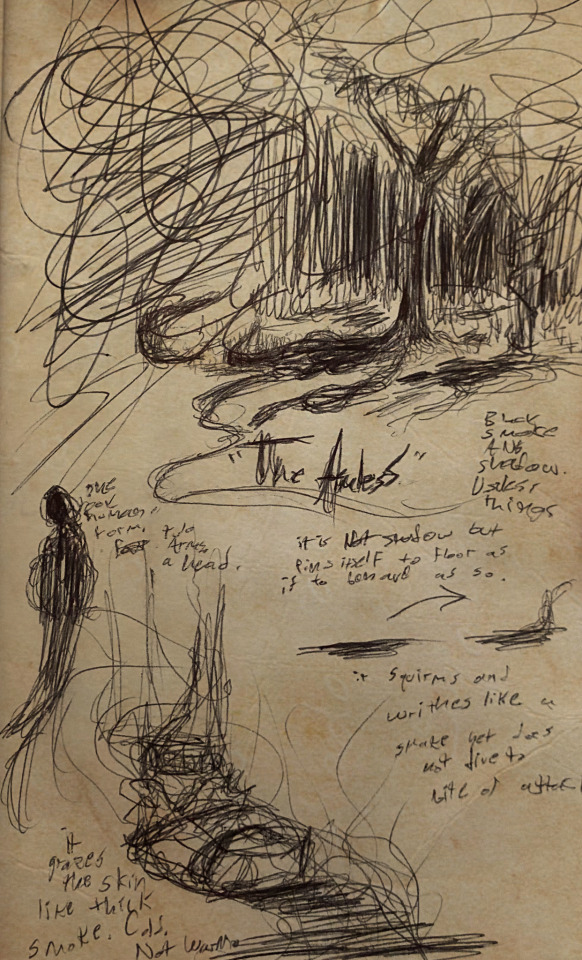 "The
Black
smoke
AND
shadow.
things
one
human
form. two
Arms,
a head.
it is Not shadow but
Pins itself to floor as
if to as so.
it squirms and
writhes like a
snake yet does
not dive to
bite or attack
it
grazes
the skin
like thick
smoke. Cold.
Not warm